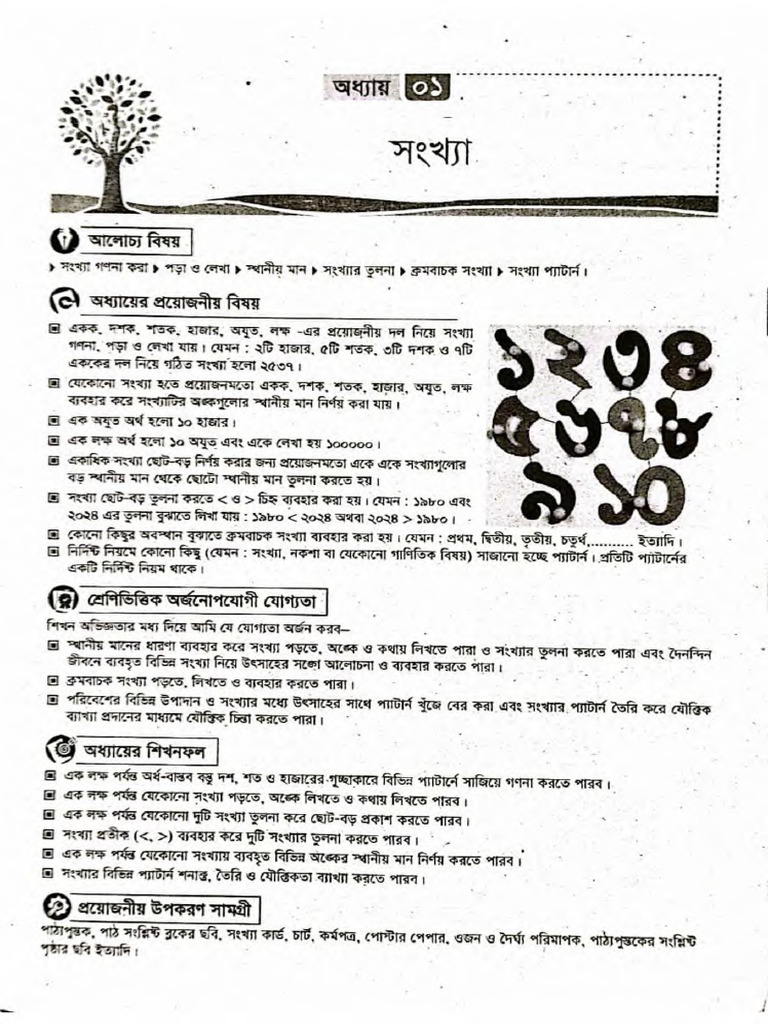 অধ্যায় ০১
সংখ্যা
আলোচ্য বিষয়
▸ সংখ্যা গণনা করা ▸ পড়া ও লেখা ▸ স্থানীয় মান ▸ সংখ্যার তুলনা ▸ ক্রমবাচক সংখ্যা ▸ সংখ্যা প্যাটার্ন।
অধ্যায়ের প্রয়োজনীয় বিষয়
একক, দশক, শতক, হাজার, অযুত, লক্ষ -এর প্রয়োজনীয় দল নিয়ে সংখ্যা
গণনা, পড়া ও লেখা যায়। যেমন : ২টি হাজার, ৫টি শতক, ৩টি দশক ও ৭টি
এককের দল নিয়ে গঠিত সংখ্যা হলো ২৫৩৭।
যেকোনো সংখ্যা হতে প্রয়োজনমতো একক, দশক, শতক, হাজার, অযুত, লক্ষ
ব্যবহার করে সংখ্যাটির অঙ্কগুলোর স্থানীয় মান নির্ণয় করা যায়।
এক অযুত অর্থ হলো ১০ হাজার।
এক লক্ষ অর্থ হলো ১০ অযুত এবং একে লেখা হয় ১০০০০০।
একাধিক সংখ্যা ছোট-বড় নির্ণয় করার জন্য প্রয়োজনমতো একে একে সংখ্যাগুলোর
বড় স্থানীয় মান থেকে ছোটো স্থানীয় মান তুলনা করতে হয়।
সংখ্যা ছোট-বড় তুলনা করতে < ও > চিহ্ন ব্যবহার করা হয়। যেমন : ১৯৮০ এবং
২০২৪ এর তুলনা বুঝাতে লিখা যায় : ১৯৮০ < ২০২৪ অথবা ২০২৪ > ১৯৮০।
১ ২ ৩ ৪
৫ ৬ ৭ ৮
৯ ১০
কোনো কিছুর অবস্থান বুঝাতে ক্রমবাচক সংখ্যা ব্যবহার করা হয়। যেমন : প্রথম, দ্বিতীয়, তৃতীয়, চতুর্থ,.......... ইত্যাদি।
নির্দিষ্ট নিয়মে কোনো কিছু (যেমন : সংখ্যা, নকশা বা যেকোনো গাণিতিক বিষয়) সাজানো হচ্ছে প্যাটার্ন। প্রতিটি প্যাটার্নের
একটি নির্দিষ্ট নিয়ম থাকে।
শ্রেণিভিত্তিক অর্জনোপযোগী যোগ্যতা
শিখন অভিজ্ঞতার মধ্য দিয়ে আমি যে যোগ্যতা অর্জন করব–
স্থানীয় মানের ধারণা ব্যবহার করে সংখ্যা পড়তে, অঙ্কে ও কথায় লিখতে পারা ও সংখ্যার তুলনা করতে পারা এবং দৈনন্দিন
জীবনে ব্যবহৃত বিভিন্ন সংখ্যা নিয়ে উৎসাহের সঙ্গে আলোচনা ও ব্যবহার করতে পারা।
ক্রমবাচক সংখ্যা পড়তে, লিখতে ও ব্যবহার করতে পারা।
পরিবেশের বিভিন্ন উপাদান ও সংখ্যার মধ্যে উৎসাহের সাথে প্যাটার্ন খুঁজে বের করা এবং সংখ্যার প্যাটার্ন তৈরি করে যৌক্তিক
ব্যাখ্যা প্রদানের মাধ্যমে যৌক্তিক চিন্তা করতে পারা।
অধ্যায়ের শিখনফল
এক লক্ষ পর্যন্ত অর্ধ-বাস্তব বস্তু দশ, শত ও হাজারের গুচ্ছাকারে বিভিন্ন প্যাটার্নে সাজিয়ে গণনা করতে পারব।
এক লক্ষ পর্যন্ত যেকোনো সংখ্যা পড়তে, অঙ্কে লিখতে ও কথায় লিখতে পারব।
এক লক্ষ পর্যন্ত যেকোনো দুটি সংখ্যা তুলনা করে ছোট-বড় প্রকাশ করতে পারব।
সংখ্যা প্রতীক (<, >) ব্যবহার করে দুটি সংখ্যার তুলনা করতে পারব।
এক লক্ষ পর্যন্ত যেকোনো সংখ্যায় ব্যবহৃত বিভিন্ন অঙ্কের স্থানীয় মান নির্ণয় করতে পারব।
সংখ্যার বিভিন্ন প্যাটার্ন শনাক্ত, তৈরি ও যৌক্তিকতা ব্যাখ্যা করতে পারব।
প্রয়োজনীয় উপকরণ সামগ্রী
পাঠ্যপুস্তক, পাঠ সংশ্লিষ্ট ব্লকের ছবি, সংখ্যা কার্ড, চার্ট, কর্মপত্র, পোস্টার পেপার, ওজন ও দৈর্ঘ্য পরিমাপক, পাঠ্যপুস্তকের সংশ্লিষ্ট
পৃষ্ঠার ছবি ইত্যাদি।